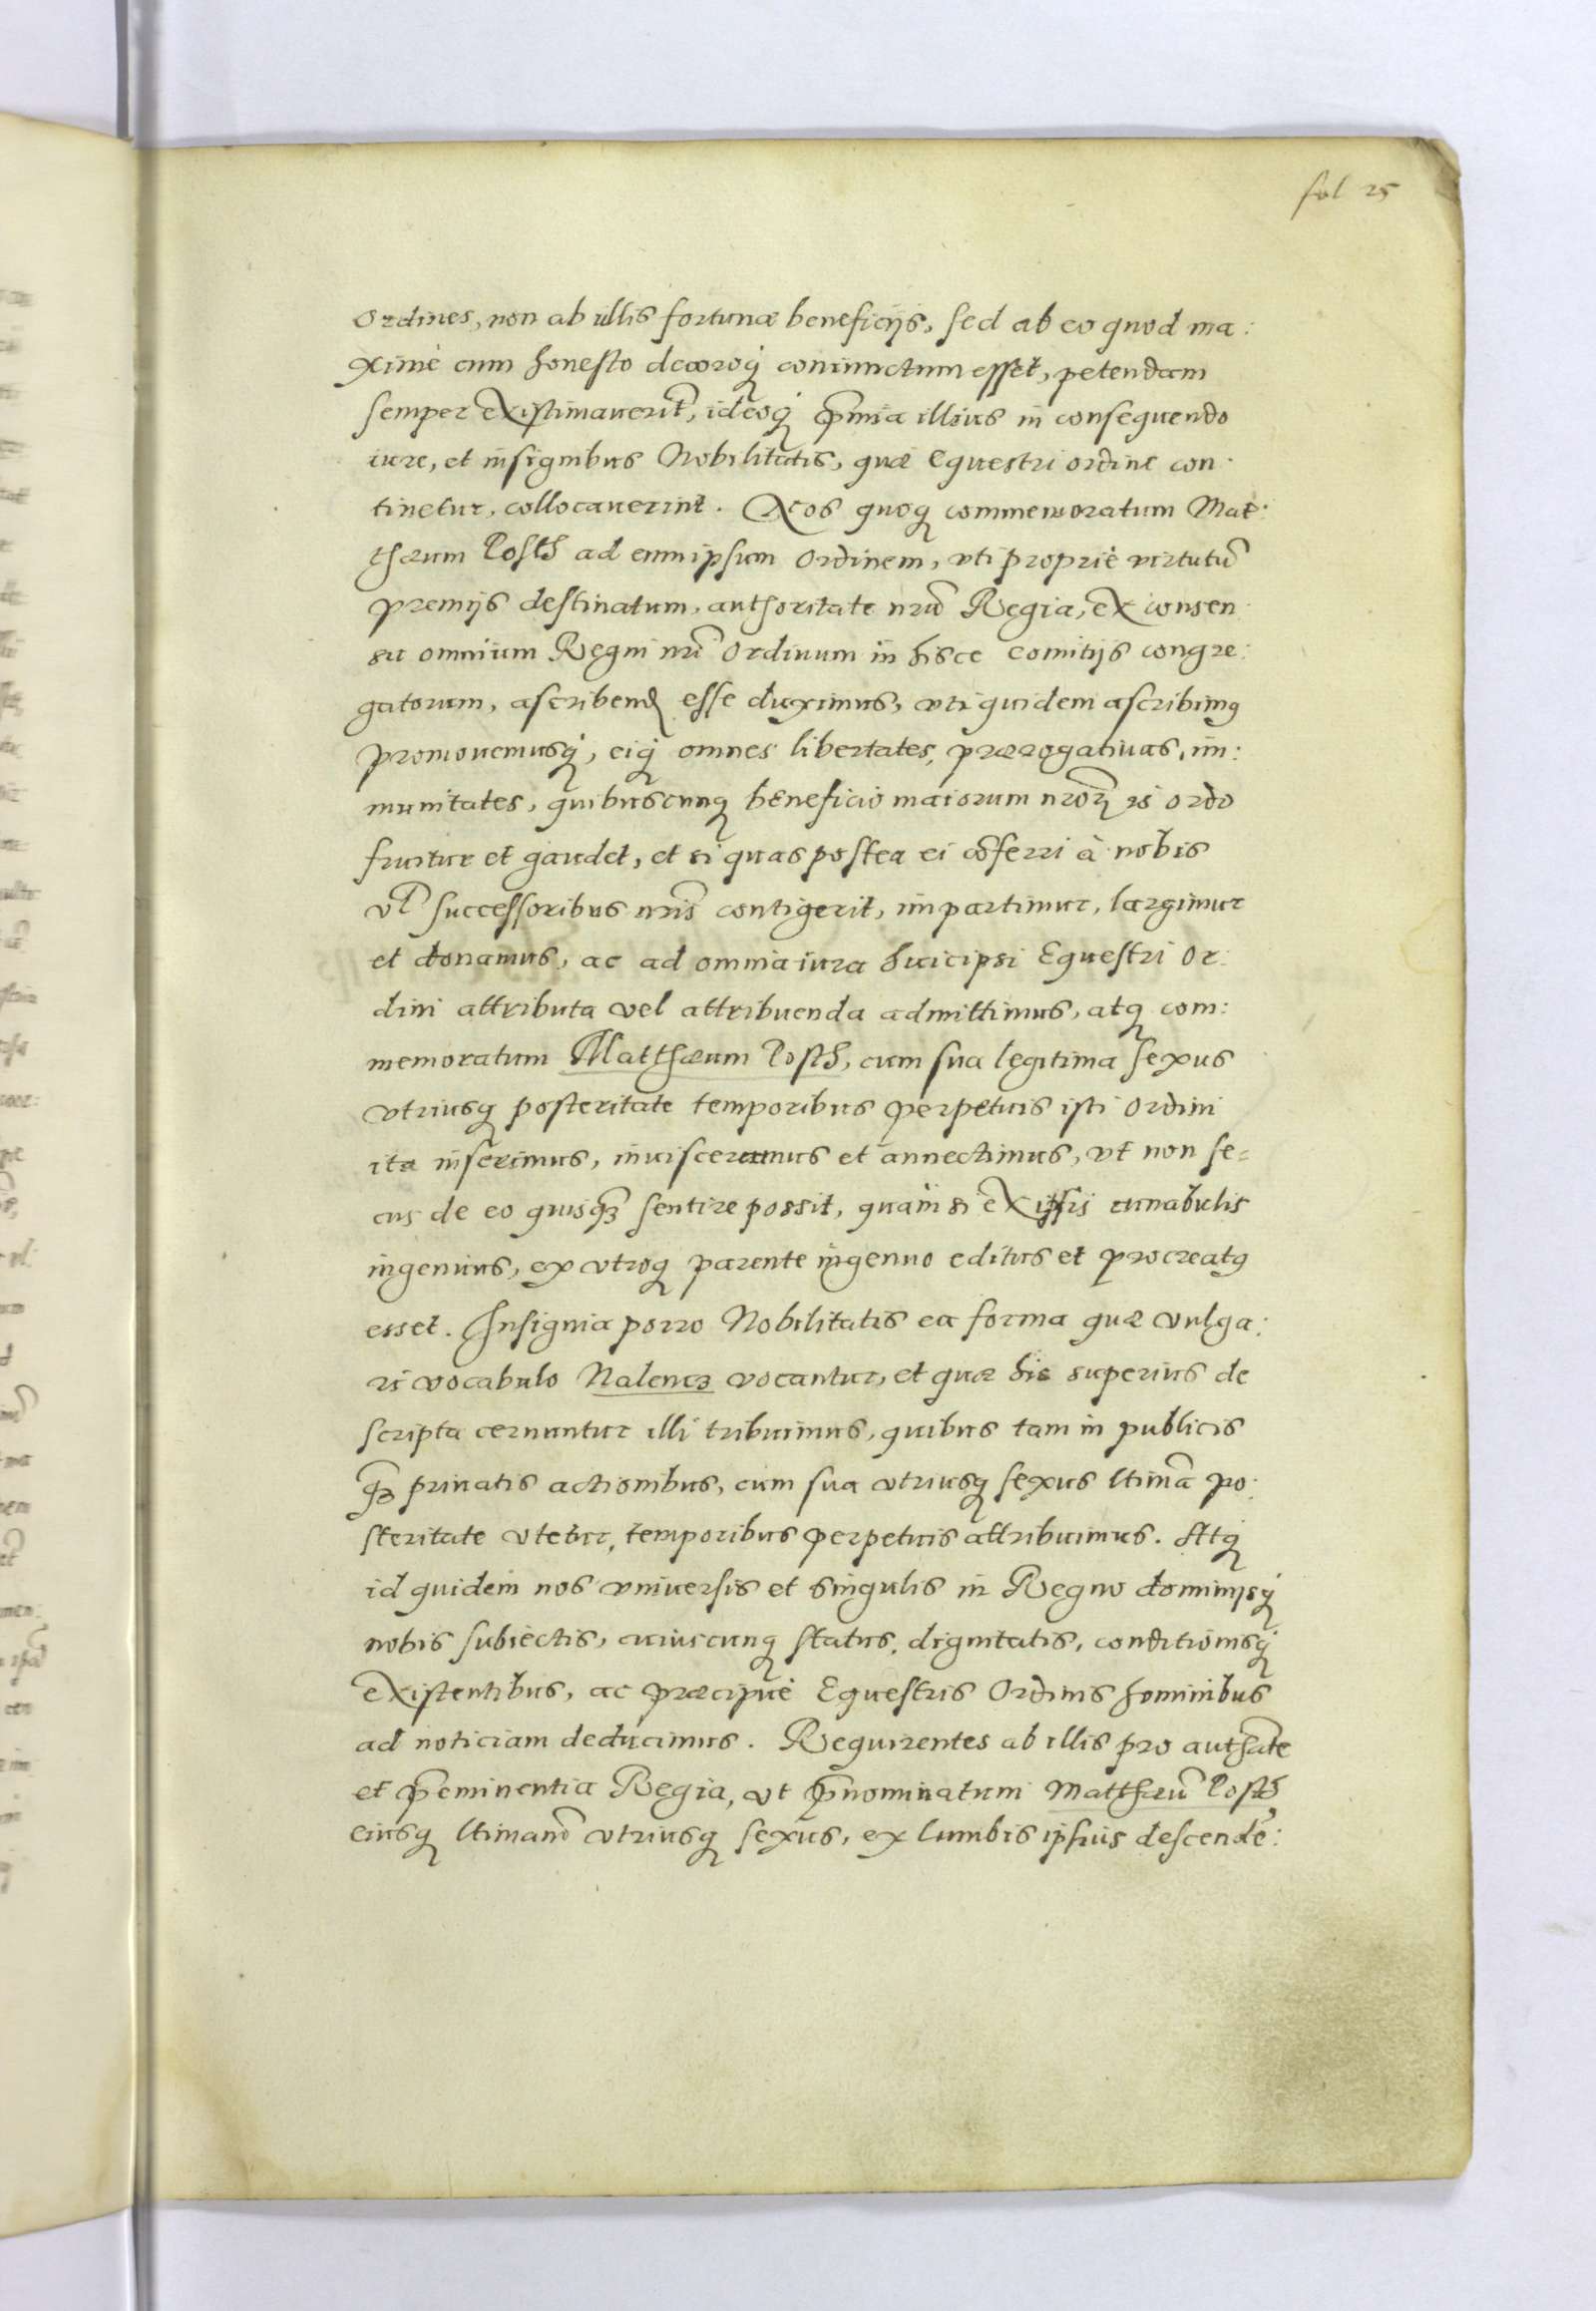 fol 25
Ordines, non ab illis fortunæ beneficijs, sed ab eo quod ma:
ximè cum honesto decoroq́ꝫ coniunctum esset, petendam
semper existimauerīt, ideoq́ꝫ p̄mia illius in consequendo
iure, et insignibus Nobilitatis, quæ equestri ordine con:
tinetur, collocauerint. Nos quoqꝫ commemoratum Mat:
thæum Posth ad eum ipsum Ordinem, vti propriè virtutū
premijs destinatum, authoritate nr̄a Regia, ex consen
su omnium Regni nr̄i Ordinum in hisce comitijs congre:
gatorum, ascribend esse duximus, vti quidem ascribimꝰ
promouemusq́ꝫ, eiq́ꝫ omnes libertates, prærogatiuas, im:
munitates, quibuscunqꝫ beneficio maiorum nr̄oꝝ is ordo
fruitur et gaudet, et si quas postea ei cōferri à nobis
vl̄ successoribus nr̄is contigerit, impartimur, largimur
et donamus, ac ad omnia iura huicipsi Equestri Or:
dini attributa vel attribuenda admittimus, atqꝫ com:
memoratum Matthæum Posth, cum sua legitima sexus
vtriusqꝫ posteritate temporibus perpetuis isti Ordini
ita inserimus, inuisceramus et annectimus, vt non se=
cus de eo quisqꝫ̄ sentire possit, quàm si ex ipsis cunabulis
ingenuus, ex vtroqꝫ parente ingenuo editus et procreatꝰ
esset. Insignia porro Nobilitatis ea forma quæ vulga:
ri vocabulo Nalencz vocantur, et quæ hic superius de
scripta cernuntur illi tribuimus, quibus tam in publicis
qꝫ̄ priuatis actionibus, cum sua vtriusqꝫ sexus ltimā po:
steritate vtetur, temporibus perpetuis attribuimus. Atq́ꝫ
id quidem nos vniuersis et singulis in Regno dominijsq́ꝫ
nobis subiectis, cuiuscunqꝫ status, dignitatis, conditionisq́ꝫ
existentibus, ac præcipuè Equestris Ordinis hominibus
ad noticiam deducimus. Requirentes ab illis pro autha̅te
et p̄eminentia Regia, vt p̄nominatum Matthæū Posth
eiusqꝫ ltimam̄ vtriusqꝫ sexus, ex lumbis ipsius descendē: